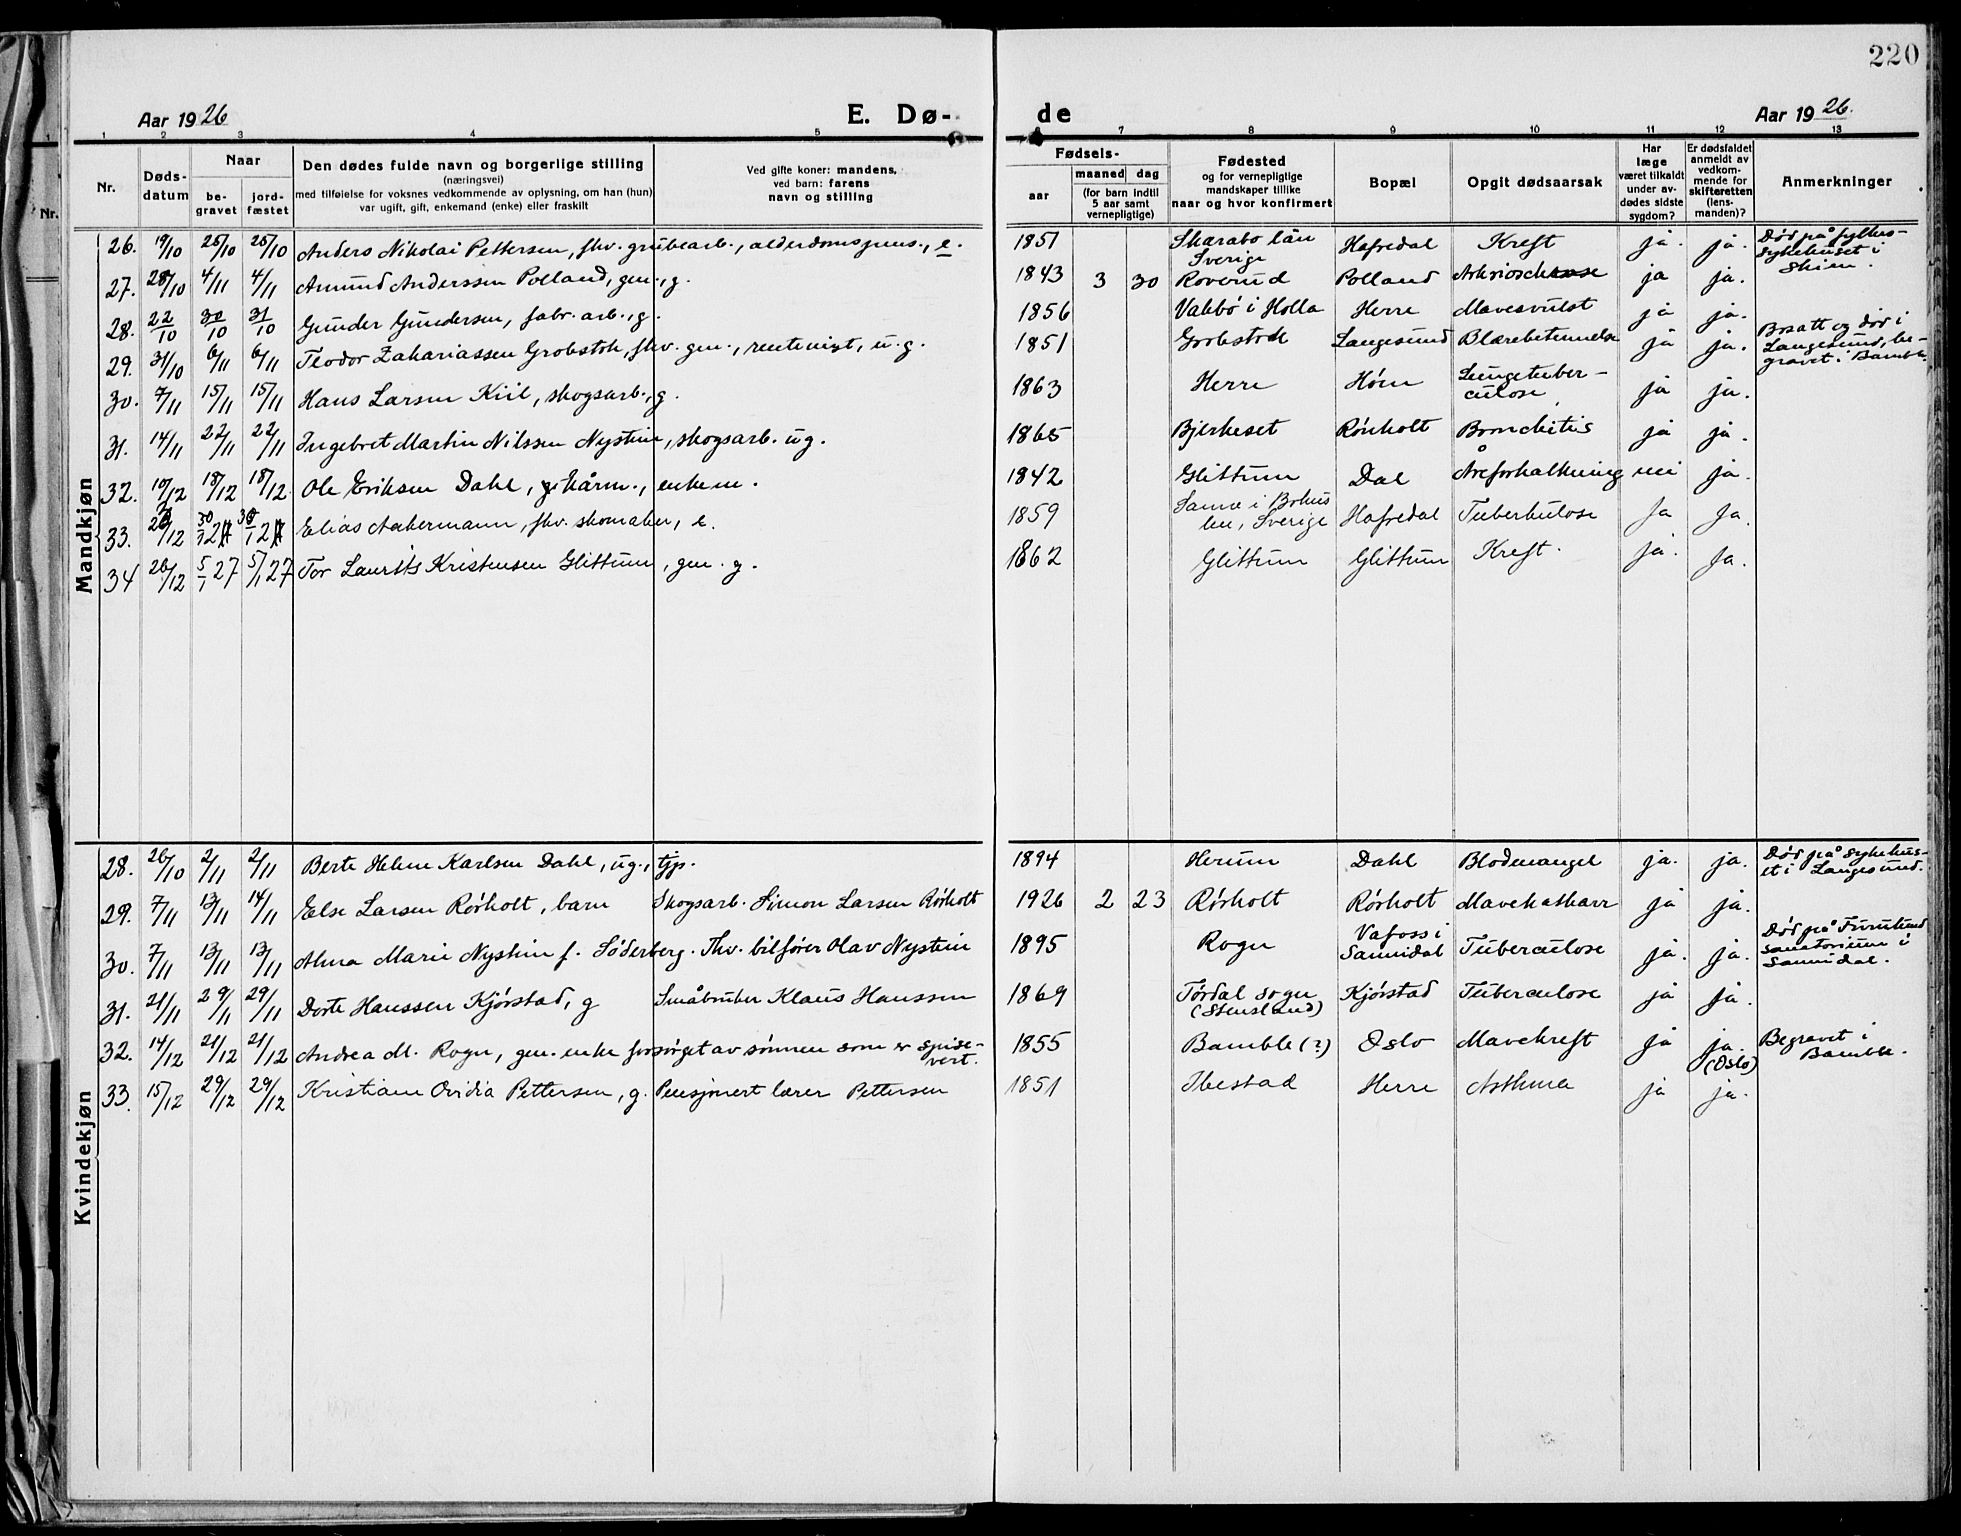 220
Aar 1926 E. Dø- de Aar 1926.
1 2 3 4 5 6 7 8 9 10 11 12 13
Nr. Døds-datum Naar be-gravet jord-fæstet Den dødes fulde navn og borgerlige stilling (næringsvei) med tilføielse for voksnes vedkommende av oplysning, om han (hun) var ugift, gift, enkemand (enke) eller fraskilt Ved gifte koner: mandens, ved barn: farens navn og stilling Fødsels- aar maaned dag (for barn indtil 5 aar samt vernepligtige) Fødested og for vernepligtige mandskaper tillike naar og hvor konfirmert Bopæl Opgit dødsaarsak Har læge været tilkaldt under av-dødes sidste sygdom? Er dødsfaldet anmeldt av vedkom-mende for skifteretten (lens-manden)? Anmerkninger
Mandkjøn
26. 19/10 25/10 25/10 Anders Nikolai Pettersen, fhv. grubearb., alderdomspens., e. 1851 Skarabo län Sverige Hafredal Kreft ja. ja. Død på fylkes-sykehuset i Skien.
27. 28/10 4/11 4/11 Amund Anderssen Polland, gm., g. 1843 3 30 Roverud Polland ja ja.
28. 22/10 30/10 31/10 Gunder Gundersen, fabr. arb., g. 1856 Vabbø i Holla Herre Mavesvulst ja ja.
29. 31/10 6/11 6/11 Teodor Zakariassen Grobstok, fhv. gm., rentenist, u. g. 1851 Grobstok Langesund Blærebetennelse ja ja. Bosatt og død i Langesund, be-gravet i Bamble.
30. 7/11 15/11 15/11 Hans Larsen Kiil, skogsarb., g. 1863 Herre Lungetuber-culose ja ja.
31. 14/11 22/11 22/11 Ingebret Martin Nilssen Nystein, skogsarb. ug. 1865 Bjerkeset Rørholt Bronchitis ja ja.
32. 10/12 18/12 18/12 Ole Eriksen Dahl, kårm., enkem. 1842 Glittum Dal Åreforkalkning nei ja.
33. /12 Elias Ackermann, fhv. skomaker, e. 1859 i Bohus len, Sverige Hafredal Tuberkulose Ja Ja.
34 26/12 5/1 27 5/1 27 Tor Laurits Kristensen Glittum, gm. g. 1862 Glittum Glittum Kreft. ja. Ja.
Kvindekjøn
28. 26/10 2/11 2/11 Berte Helene Karlsen Dahl, ug., tjp. 1894 Herum Dahl Blodmangel ja. ja. Død på sykehus-et i Langesund.
29. 7/11 13/11 14/11 Else Larsen Rørholt, barn Skogsarb. Simon Larsen Rørholt 1926 2 23 Rørholt Rørholt Mavekatharr ja ja.
30. 7/11 13/11 13/11 Alma Marie Nystein f. Söderberg. Fhv. bilfører Olav Nystein 1895 Rogn Vafoss i Sannidal Tuberculose ja. ja. Død på Furulund sanatorium i Sannidal.
31. 21/11 29/11 29/11 Dorte Hanssen Kjørstad, g Småbruker Klaus Hanssen 1869 Tørdal sogn (Stensland) Kjørstad Tuberculose ja ja.
32. 14/12 21/12 21/12 Andrea M. Rogn, gm. enke forsørget av sønnen som er spise-vert. 1855 Bamble (?) Oslo Mavekreft ja ja. (Oslo) Begravet i Bamble.
33. 15/12 29/12 29/12 Kristiane Ovidia Pettersen, g. Pensjonert lærer Pettersen 1851 Ibestad Herre Asthma ja ja.